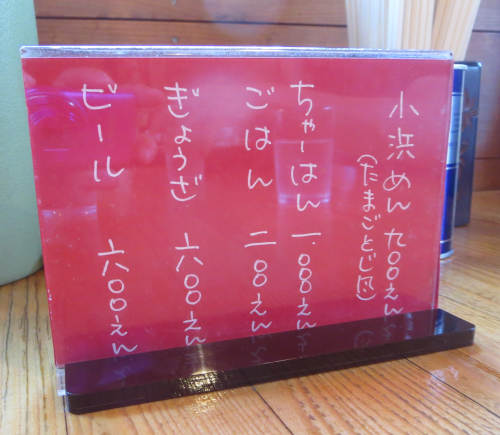 小浜めん 九〇〇えん
(たまごとじ風)
ちゃーはん 一.〇〇〇えん
ごはん 二〇〇えん
ぎょうざ 六〇〇えん
ビール 六〇〇えん